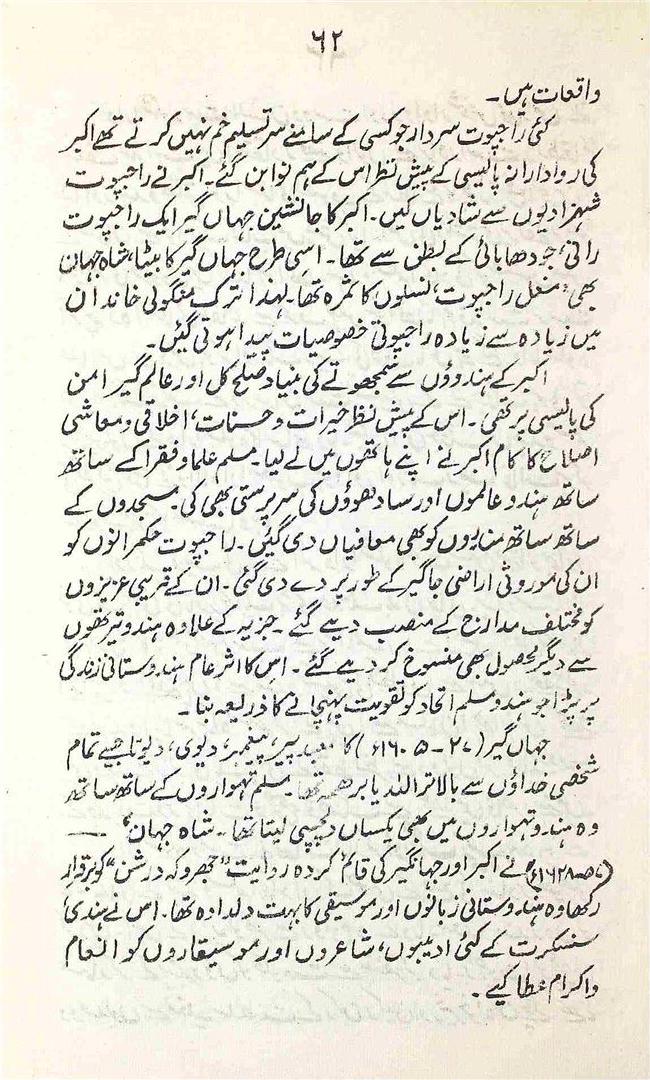 ۶۲
واقعات ہیں۔
کئی راجپوت سردار جو کسی کے سامنے سر تسلیم خم نہیں کرتے تھے اکبر
کی روادارانہ پالیسی کے پیش نظر اس کے ہم نوا بن گئے۔ اکبر نے راجپوت
شہزادیوں سے شادیاں کیں۔ اکبر کا جانشین جہاں گیر ایک راجپوت
رانی، جودھابائی کے بطن سے تھا۔ اسی طرح جہاں گیر کا بیٹا، شاہ جہان
بھی، مغل راجپوت، نسلوں کا ثمرہ تھا۔ لہٰذا ترک منگولی خاندان
میں زیادہ سے زیادہ راجپوتی خصوصیات پیدا ہوتی گئیں۔
اکبر کے ہندوؤں سے سمجھوتے کی بنیاد صلح کل اور عالم گیر امن
کی پالیسی پر تھی۔ اس کے پیش نظر خیرات و حسنات، اخلاقی و معاشی
اصلاح کا کام اکبر نے اپنے ہاتھوں میں لے لیا۔ مسلم علما و فقرا کے ساتھ
ساتھ ہندو عالموں اور سادھوؤں کی سرپرستی بھی کی۔ مسجدوں کے
ساتھ ساتھ مندروں کو بھی معافیاں دی گئیں۔ راجپوت حکمرانوں کو
ان کی موروثی اراضی جاگیر کے طور پر دے دی گئی۔ ان کے قریبی عزیزوں
کو مختلف مدارج کے منصب دیے گئے۔ جزیہ کے علاوہ ہندو تیرتھوں
سے دیگر محصول بھی منسوخ کر دیے گئے۔ اس کا اثر عام ہندوستانی زندگی
پر پڑا جو ہندو مسلم اتحاد کو تقویت پہنچانے کا ذریعہ بنا۔
جہاں گیر (۲۷-۱۶۰۵ء) کا معبد پیر، پیغمبر، دیوی، دیوتا جیسے تمام
شخصی خداؤں سے بالاتر اللہ یا برھمہ تھا۔ مسلم تہواروں کے ساتھ ساتھ
وہ ہندو تہواروں میں بھی یکساں دلچسپی لیتا تھا۔ شاہ جہان، —
(۵۸-۱۶۲۸ء) نے اکبر اور جہانگیر کی قائم کردہ روایت "جھروکہ درشن" کو برقرار
رکھا وہ ہندوستانی زبانوں اور موسیقی کا بہت دلدادہ تھا۔ اس نے ہندی،
سنسکرت کے کئی ادیبوں، شاعروں اور موسیقاروں کو انعام
واکرام عطا کیے۔